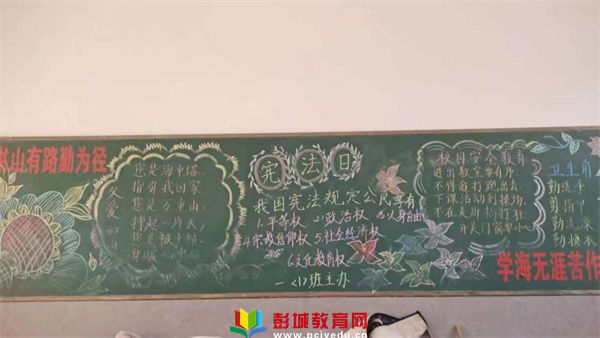 书山有路勤为径
父爱
您是海中塔
指引我回家
您是万重山
您是
宪法日
我国宪法规定公民享有
1.平等权 2.政治权 3.人身自由
4.宗教信仰权 5.社会经济权
6.文化教育权
一〈1〉班主办
校园安全教育
进出教室要有序
不得追打跑出去
下课活动到操场
卫生角
勤洗手
剪指甲
勤洗澡
勤换衣
学海无涯苦作
彭城教育网
www.pcjyedu.cn